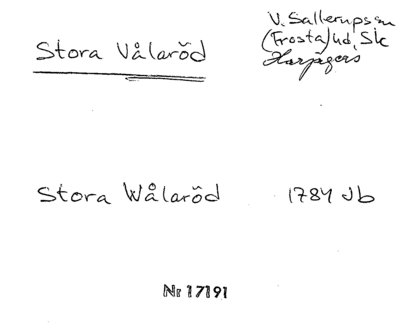 Stora Vålaröd
V. Sallerups sn
(Frosta) hd, Sk
Harjagers
Stora Wålaröd 1784 Jb
Nr 17191